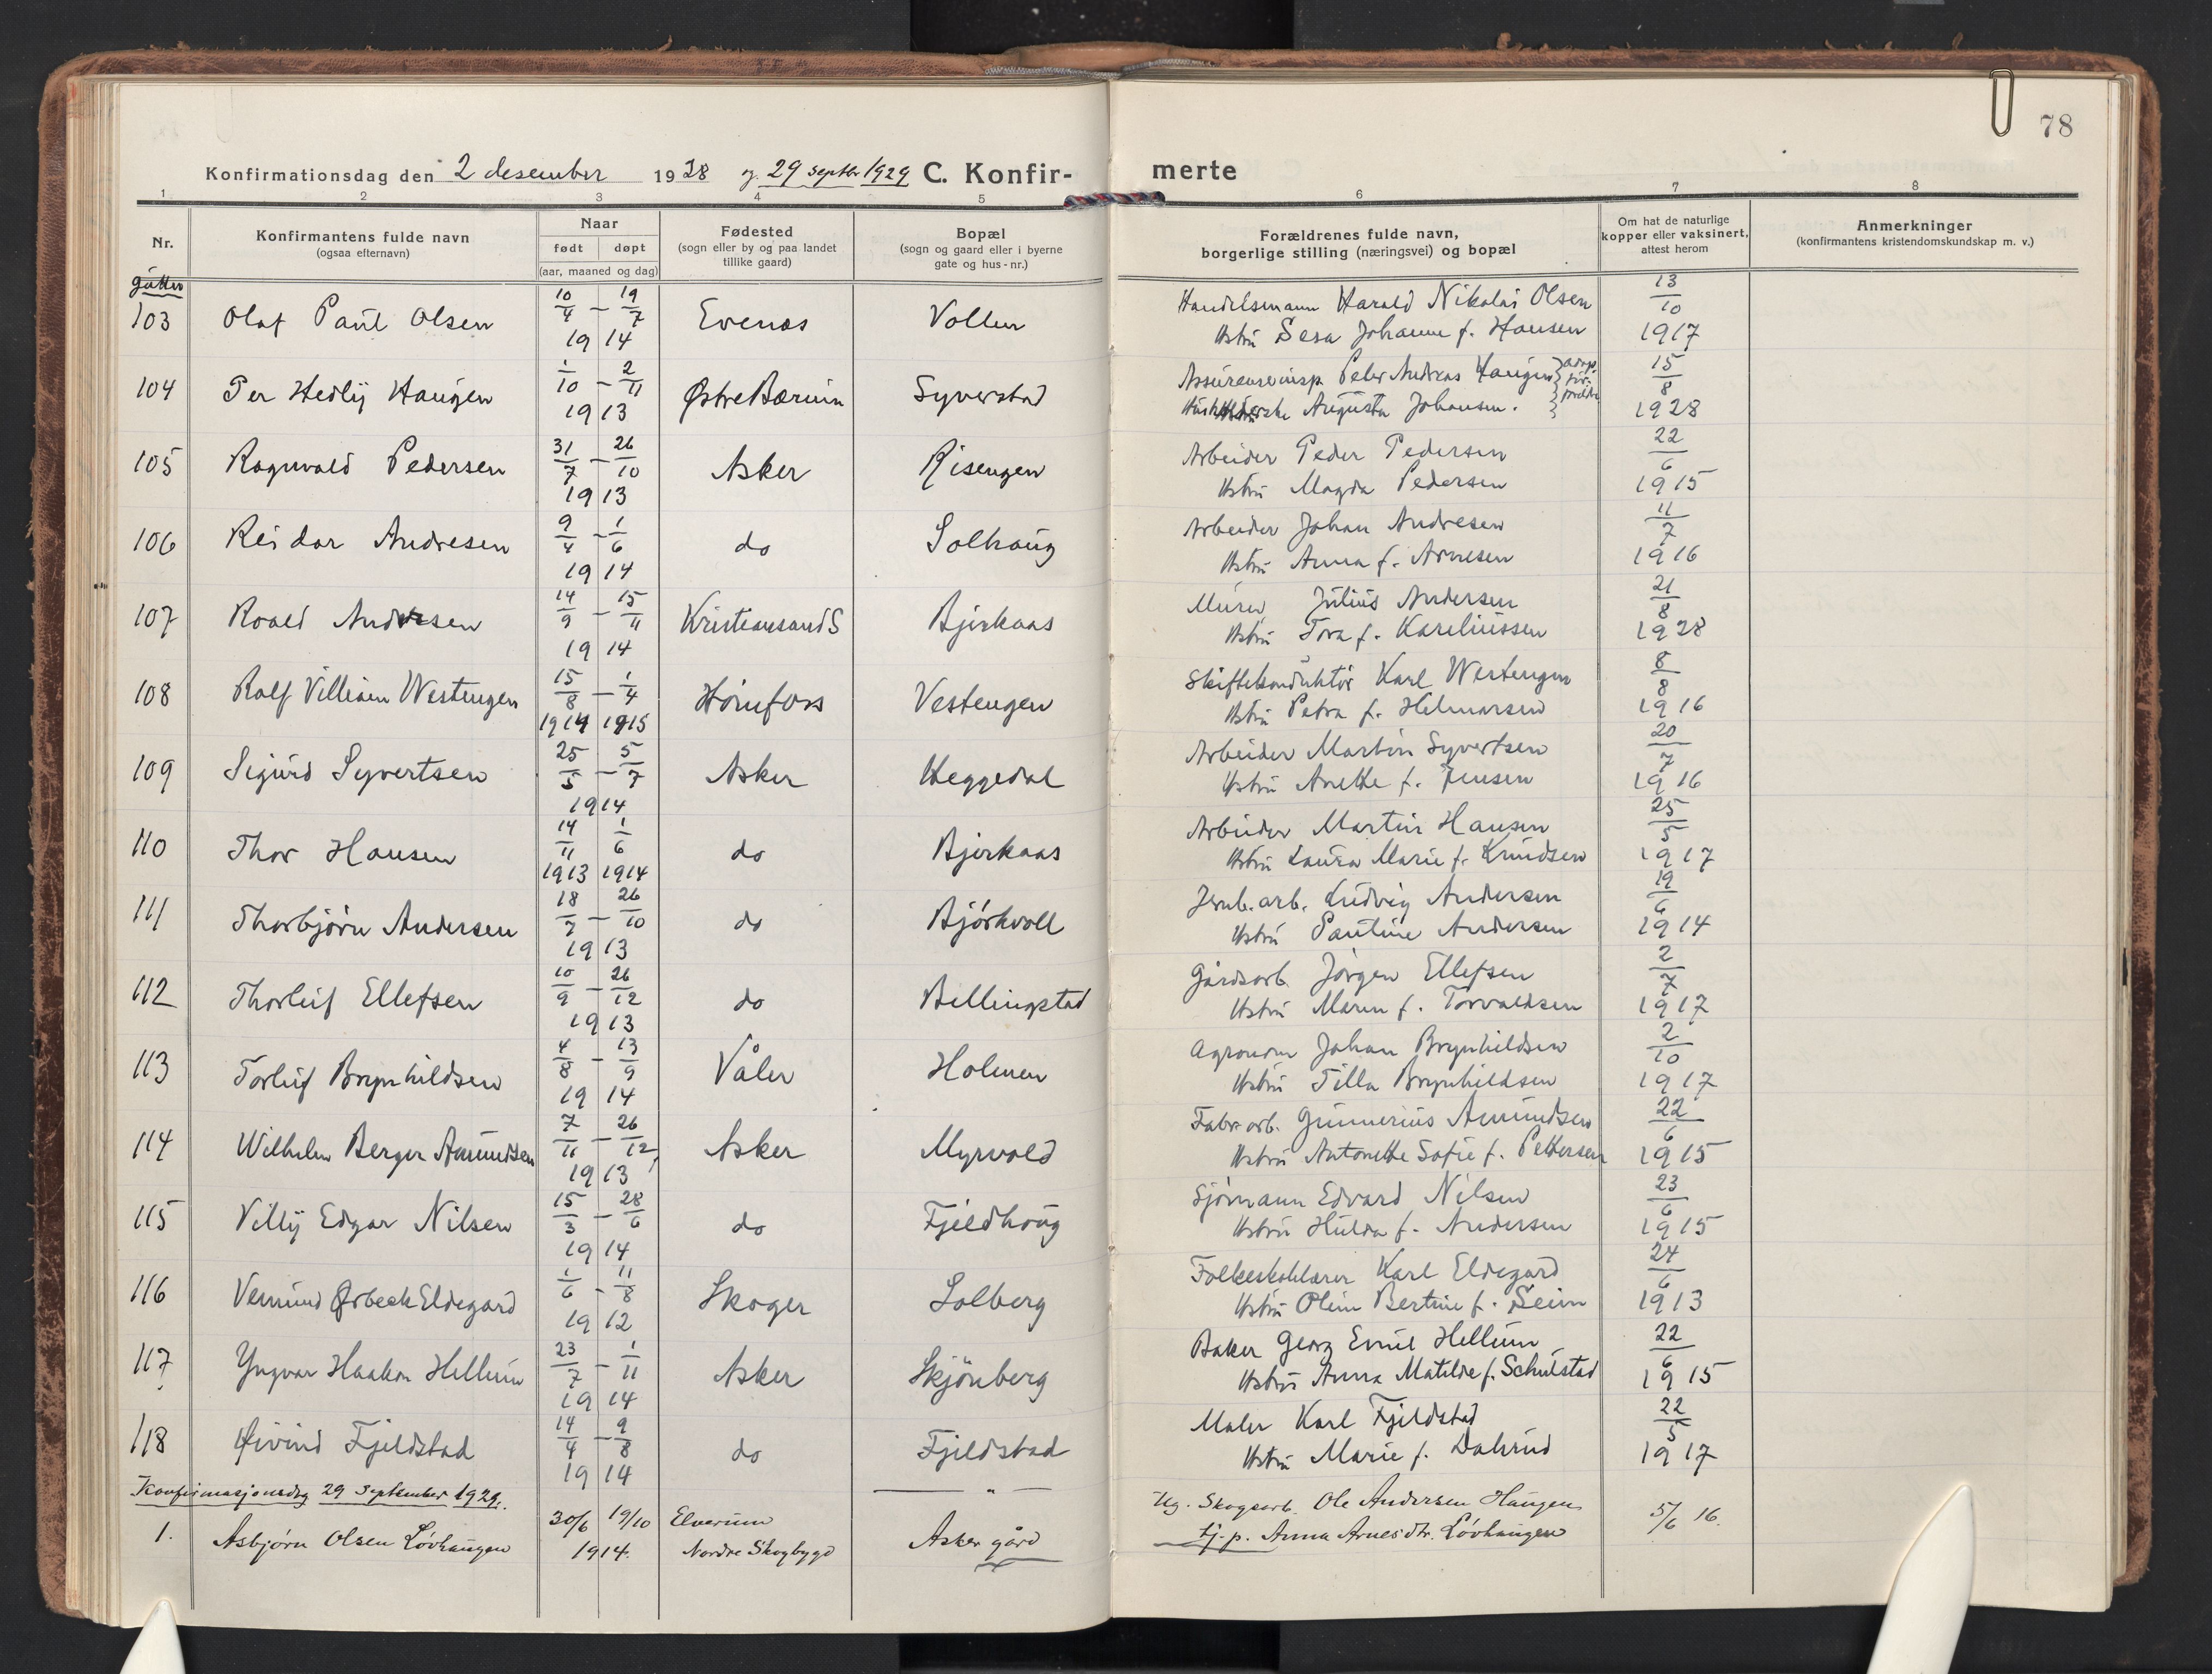 78
Konfirmationsdag den 2 desember 1928 og 29 septbr 1929 C. Konfir-
merte
1 2 3 4 5 6 7 8
Nr.
Konfirmantens fulde navn
(ogsaa efternavn)
Naar
født døpt
(aar, maaned og dag)
Fødested
(sogn eller by og paa landet
tillike gaard)
Bopæl
(sogn og gaard eller i byerne
gate og hus-nr.)
Forældrenes fulde navn,
borgerlige stilling (næringsvei) og bopæl
Om hat de naturlige
kopper eller vaksinert,
attest herom
Anmerkninger
(konfirmantens kristendomskundskap m. v.)
gutter
103 Olaf Paul Olsen 10/4 – 19/7 1914 Evenes Vollen Handelsmann Harald Nikolai Olsen 13/10
Hstru Sesa Johanne f. Hansen 1917
104 Per Hedly Haugen 1/10 – 2/11 1913 Østre Bærum Syverstad Assuranseinsp. Peter Andreas Haugen } adop. 15/8
Augusta Johansen. } foreldre 1928
105 Ragnvald Pedersen 31/7 – 26/10 1913 Asker Risengen Arbeider Peder Pedersen 22/6
Hstru Magda Pedersen 1915
106 Reidar Andresen 9/4 – 1/6 1914 do Solhaug Arbeider Johan Andresen 11/7
Hstru Anna f. Arnesen 1916
107 Roald Andersen 14/9 – 15/11 1914 Kristiansand S Bjerkaas Murer Julius Andersen 21/8
Hstru Tora f. Kareliussen 1928
108 Rolf Villiam Westengen 15/8 – 1/4 1914 1915 Hønefoss Vestengen Skiftekonduktør Karl Westengen 8/8
Hstru Petra f. Helmersen 1916
109 Sigurd Syvertsen 25/5 – 5/7 1914 Asker Heggedal Arbeider Martin Syvertsen 20/7
Hstru Anette f. Jensen 1916
110 Thor Hansen 14/11 1/6 1913 1914 do Bjerkaas Arbeider Martin Hansen 25/5
Hstru Laura Marie f. Knudsen 1917
111 Thorbjørn Andersen 18/7 – 26/10 1913 do Bjørkvoll Jernb. arb. Ludvig Andersen 19/6
Hstru Pauline Andersen 1914
112 Thorleif Ellefsen 10/9 – 26/12 1913 do Billingstad Gårdsarb. Jørgen Ellefsen 2/7
Hstru Maren f. Torvaldsen 1917
113 Torleif Brynhildsen 4/8 – 13/9 1914 Våler Holmen Agronom Johan Brynhildsen 2/10
Hstru Tilla Brynhildsen 1917
114 Wilhelm Berger Amundsen 7/11 – 26/12 1913 Asker Myrvold Fabr. arb. Gunnerius Amundsen 22/6
Hstru Antonette Sofie f. Pettersen 1915
115 Villy Edgar Nilsen 15/3 – 28/6 1914 do Fjeldhoug Sjømann Edvard Nilsen 23/6
Hstru Hulda f. Andersen 1915
116 Vemund Ørbeck Eldegard 1/6 – 11/8 1912 Skoger Solberg Folkeskolelærer Karl Eldegard 24/6
Hstru Oline Bertine f. Seim 1913
117 Yngvar Haakon Hellum 23/7 – 1/11 1914 Asker Skjønberg Baker Georg Emil Hellum 22/6
Hstru Anna Matilde f. Schulstad 1915
118 Øivind Fjeldstad 14/4 – 9/8 1914 do Fjeldstad Maler Karl Fjeldstad 22/5
Hstru Marie f. Dalsrud 1917
Konfirmasjonsdag 29 september 1929. — " —
1. Asbjørn Olsen Løvhaugen 30/6 19/10 1914. Elverum Nordre Skogbygd Asker gård Ug. Skogsarb. Ole Andersen Haugen 5/6 16.
tj. p. Anna Arnesdtr. Løvhaugen